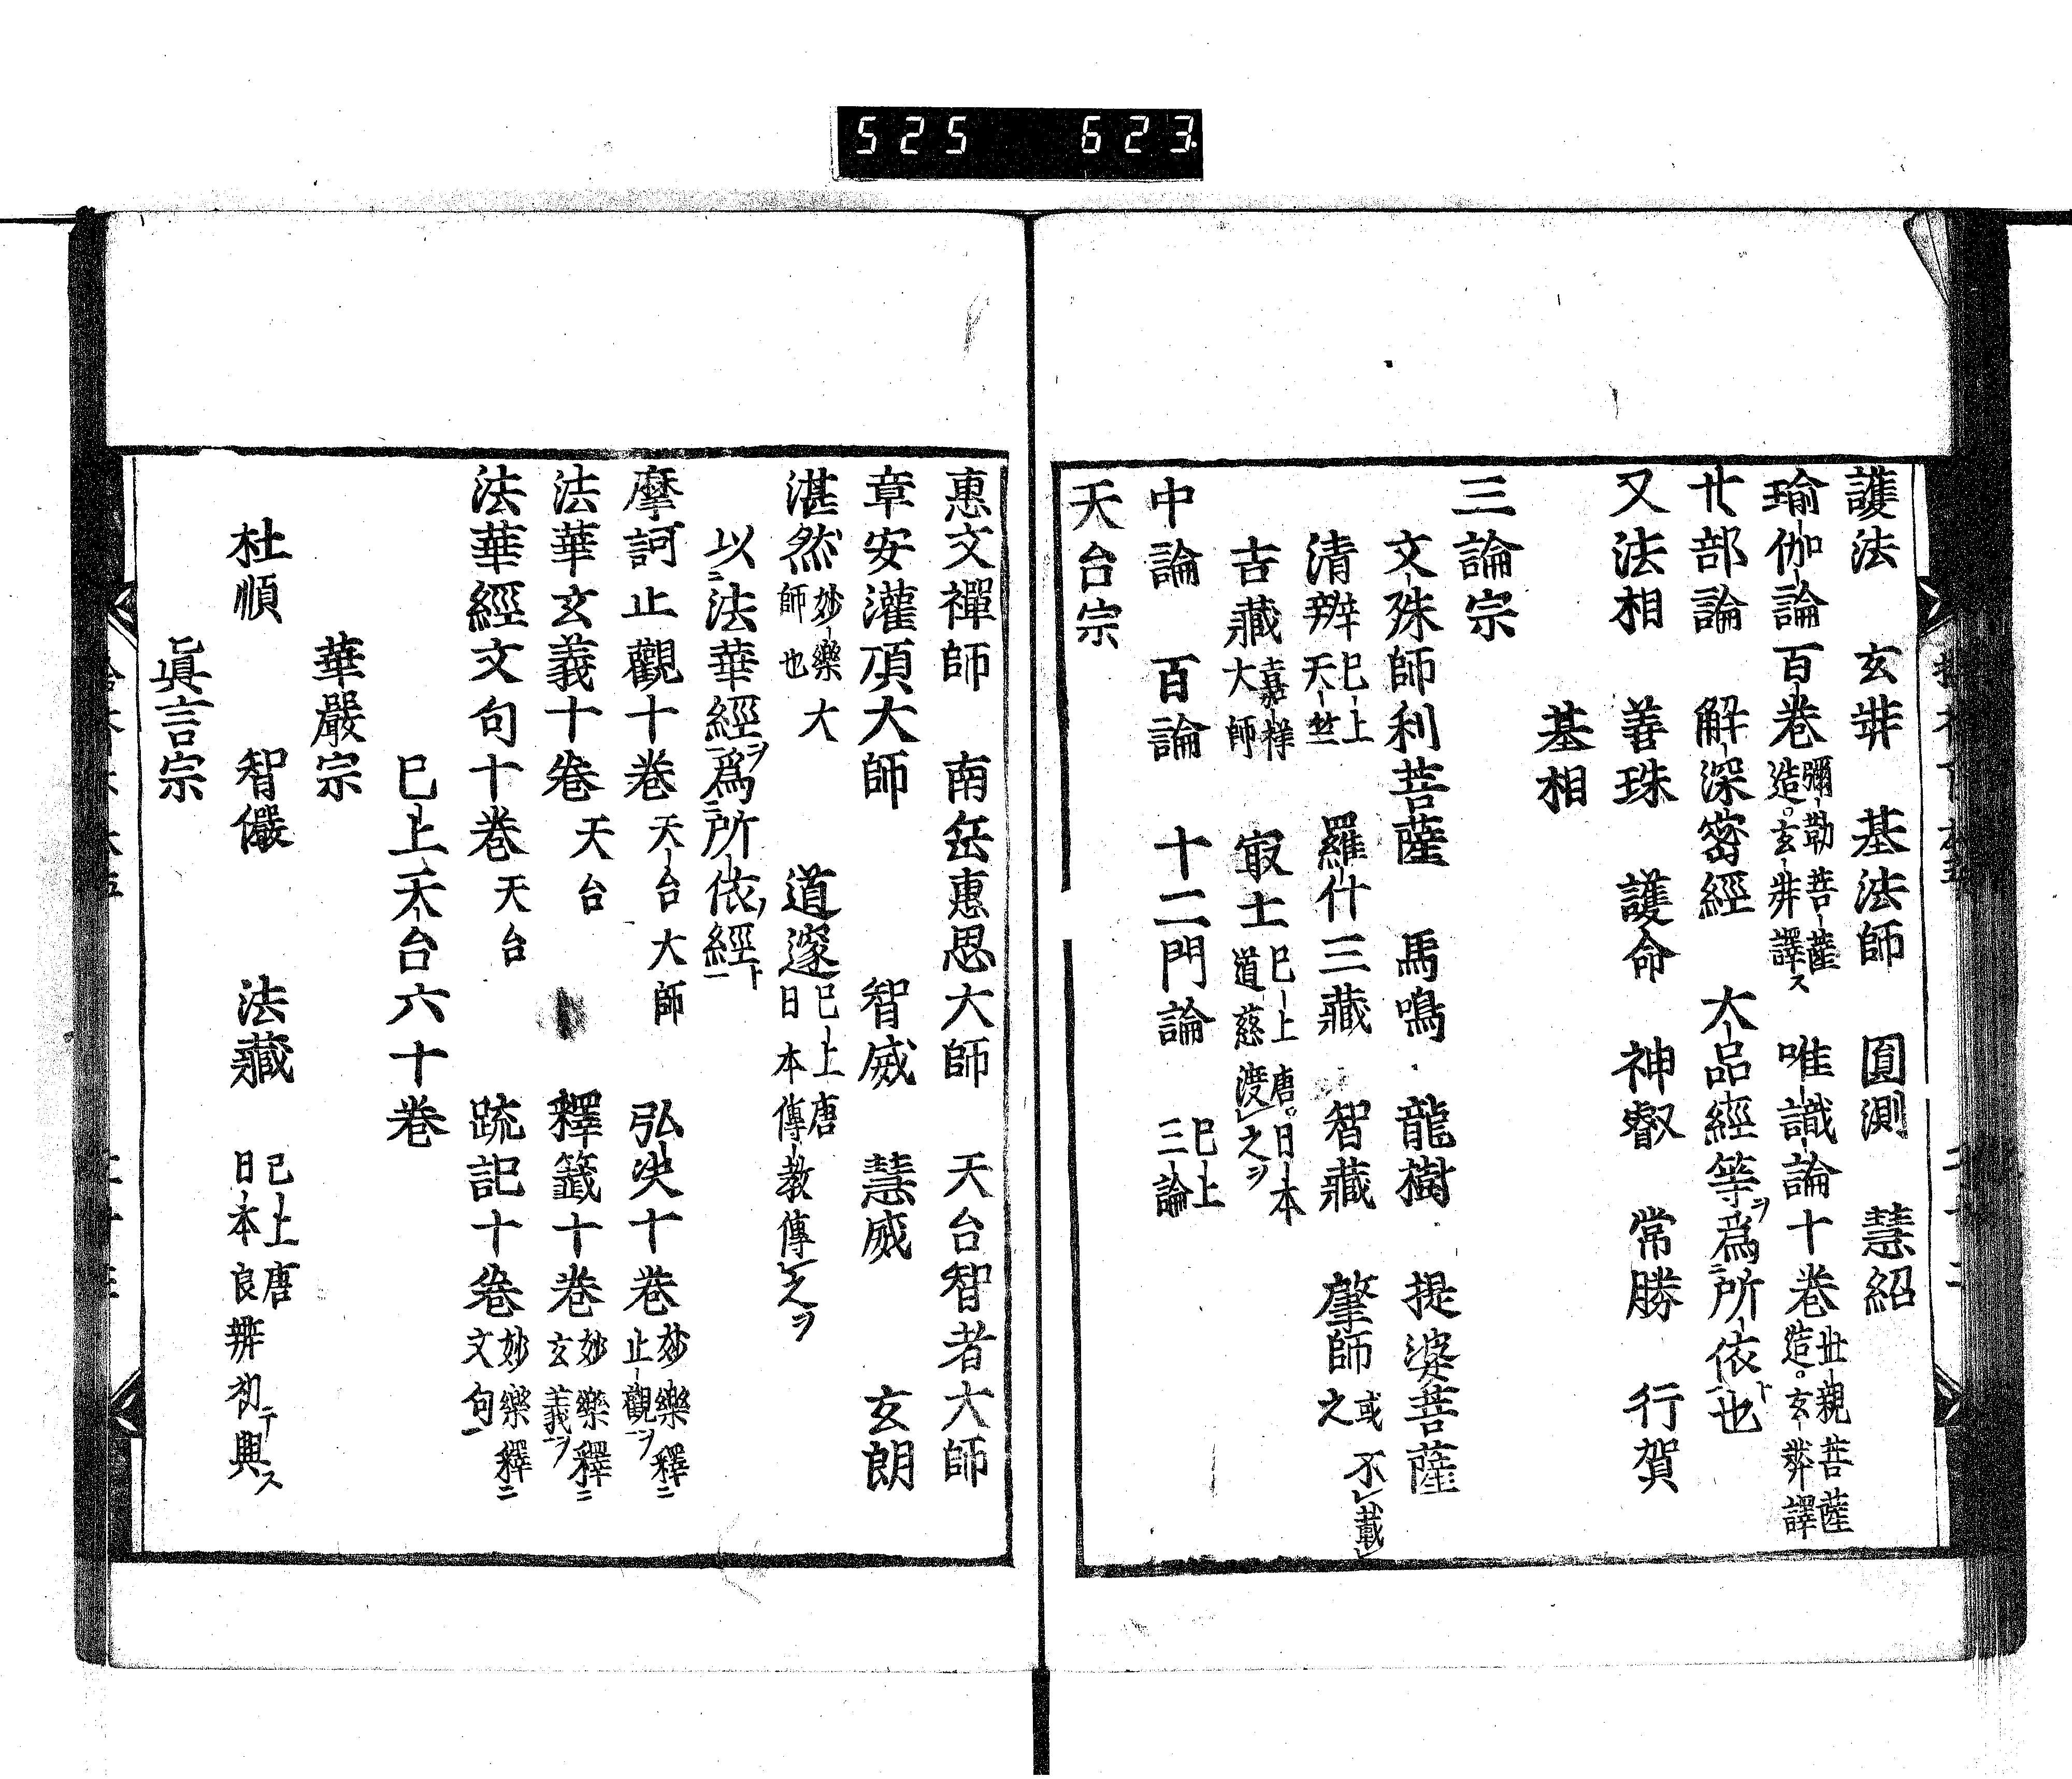 525 623
護法 玄弉 基法師 圓測 慧紹
瑜伽論百巻 彌勒菩薩造。玄弉譯ス 唯識論十巻 丗親菩薩造。玄弉譯
廿部論 解深密經 大品經等ヲ爲ニ所依ト一也
又法相 善珠 護命 神叡 常勝 行賀
基相
三論宗
文殊師利菩薩 馬鳴 龍樹 提婆菩薩
清辨 已上天竺 羅什三藏 智藏 肇師 或不レ載レ之
吉藏 嘉祥大師 㝡士 已上唐。日本道慈渡レ之ヲ
中論 百論 十二門論 已上三論
天台宗
惠文禪師 南岳惠思大師 天台智者大師
章安灌頂大師 智威 慧威 玄朗
湛然 妙樂大師也 道邃 已上唐日本傳教傳レ之ヲ
以ニ法華經ヲ一爲ニ所依經ト一
摩訶止觀十巻 天台大師 弘决十巻 妙樂釋ニ止觀ヲ一
法華玄義十巻 天台 釋籤十巻 妙樂釋ニ玄義ヲ一
法華經文句十巻 天台 疏記十巻 妙樂釋ニ文句一
已上天台六十巻
華嚴宗
杜順 智儼 法藏 已上唐日本良辨初テ興ス
眞言宗